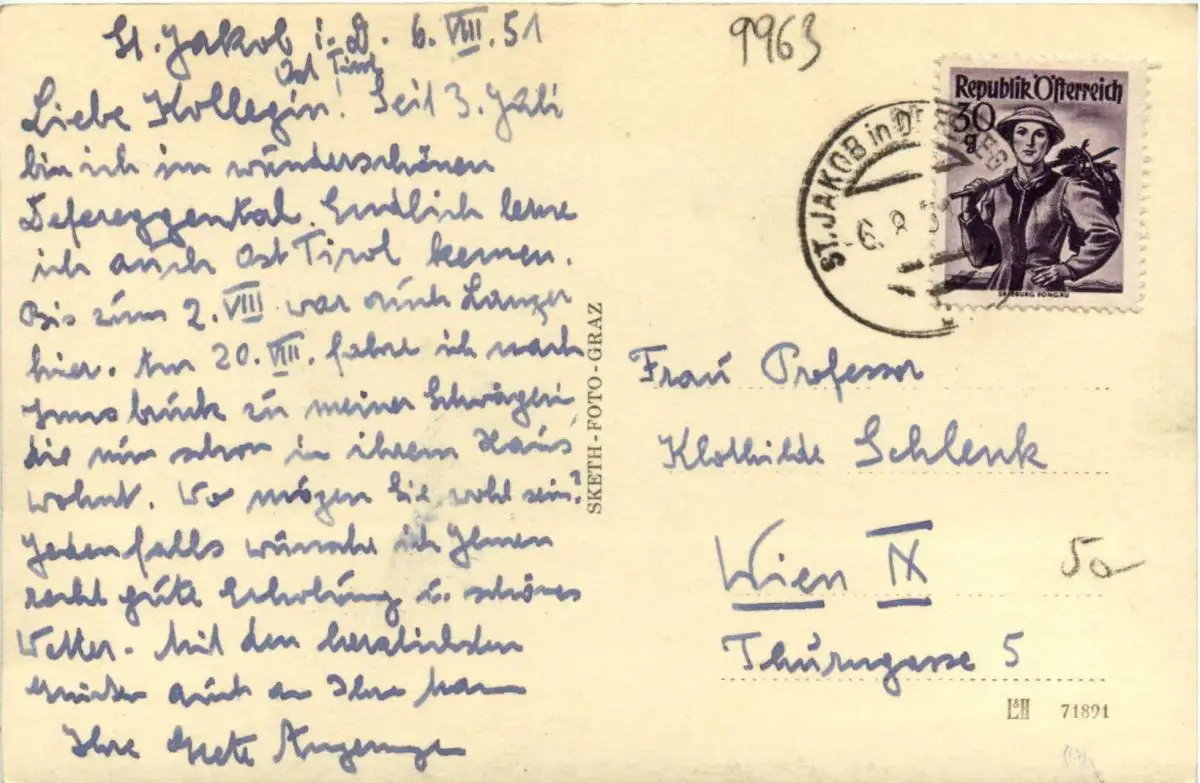 St. Jakob i. D. 6. VIII. 51
Ost Tirol
Liebe Kollegin! Seit 3. Juli
bin ich im wunderschönen
Defereggental. Endlich lerne
ich auch Ost Tirol kennen.
Bis zum 2. VIII war auch
hier. Am 20. VIII. fahre ich nach
Innsbruck zu meiner Schwägerin
die nun schon in ihrem Haus
wohnt. Wo mögen Sie wohl sein?
Jedenfalls wünsche ich Ihnen
recht gute Erholung u. schönes
Wetter. Mit den herzlichsten
Grüßen auch an Ihre
Ihre Grete
SKETH-FOTO-GRAZ
9963
Republik Österreich
30
g
SALZBURG PONGAU
ST. JAKOB in DEFEREGGEN
6. 8. 5
Frau Professor
Klothilde Schlenk
Wien IX
50
Thurngasse 5
L&H 71891